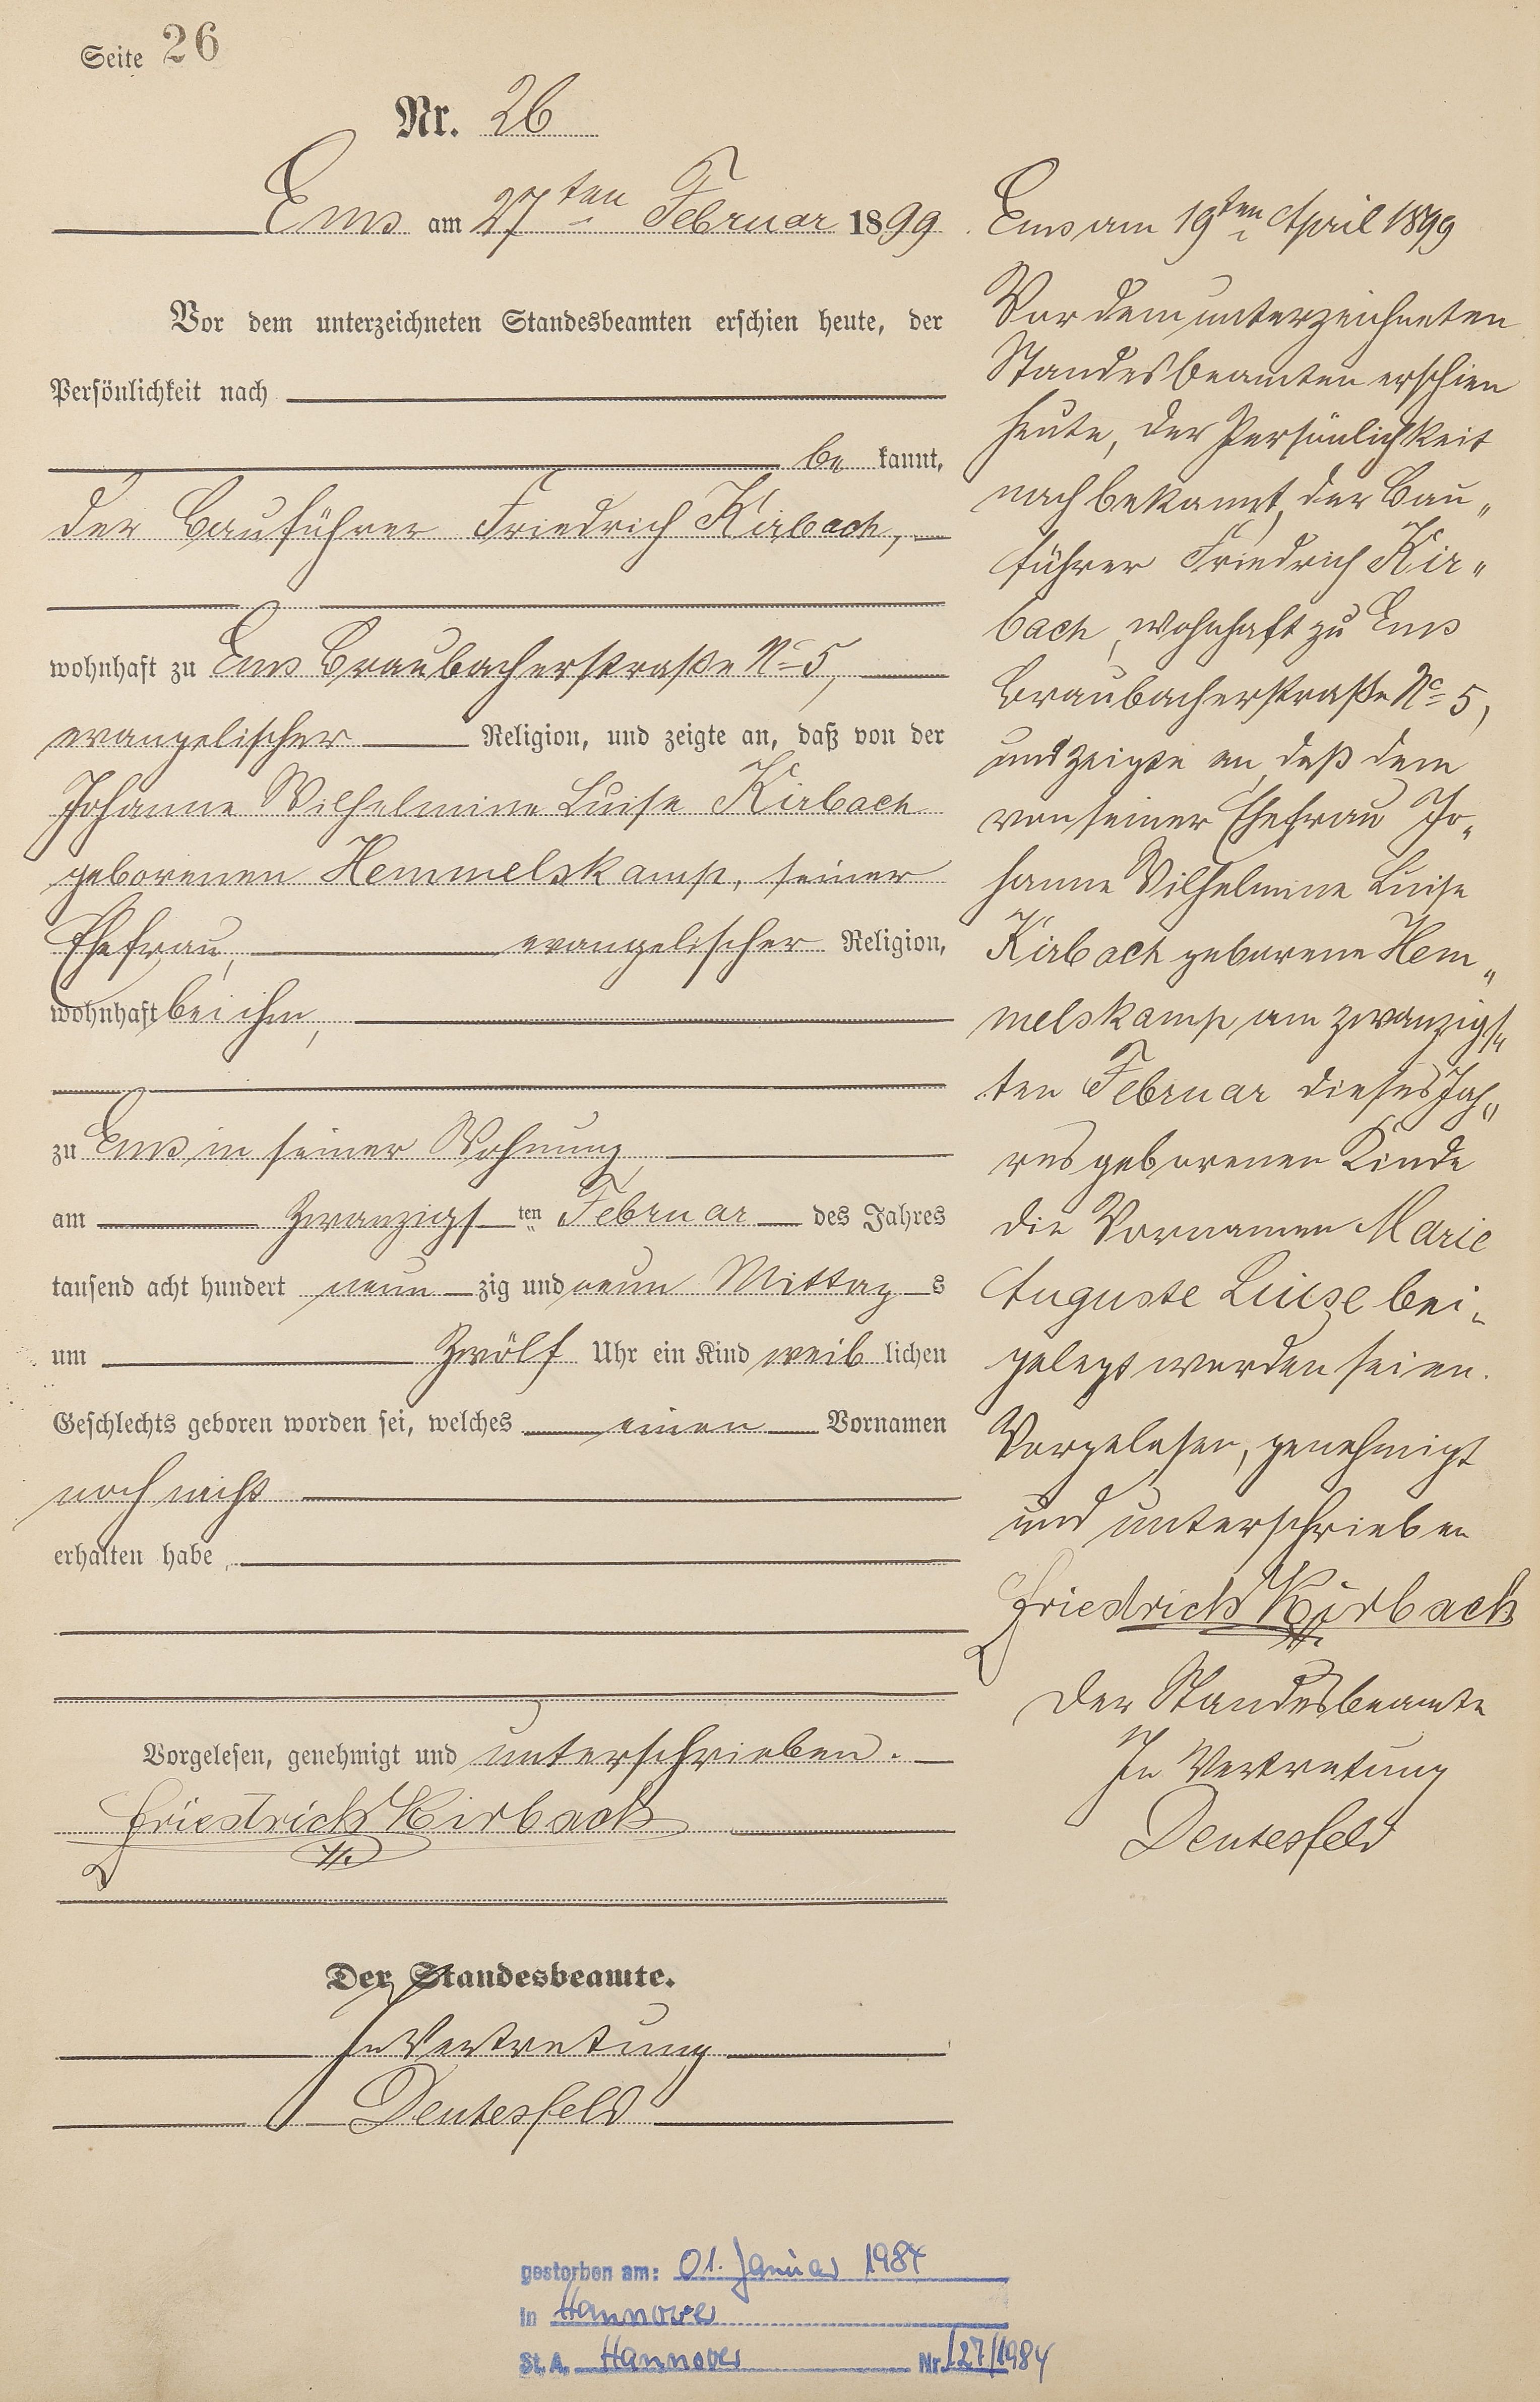 Seite 26
Nr. 26
Ems am 27ten Februar 1899
Vor dem unterzeichneten Standesbeamten erschien heute, der
Persönlichkeit nach
be kannt,
der Bauführer Friedrich Kirbach,
wohnhaft zu Ems Braubacherstraße No 5,
evangelischer Religion, und zeigte an, daß von der
Johanne Wilhelmine Luise Kirbach
geborenen Hemmelskamp, seiner
Ehefrau, evangelischer Religion,
wohnhaft bei ihm,
zu Ems in seiner Wohnung,
am zwanzigsten Februar des Jahres
tausend acht hundert neun zig und neun Mittag s
um zwölf Uhr ein Kind weib lichen
Geschlechts geboren worden sei, welches einen Vornamen
noch nicht
erhalten habe.
Vorgelesen, genehmigt und unterschrieben.
Friedrich Kirbach
Der Standesbeamte.
In Vertretung
Deutesfeld
Ems am 19ten April 1899
Vor dem unterzeichneten
Standesbeamten erschien
heute, der Persönlichkeit
nach bekannt, der Bau„
führer Friedrich Kir„
bach, wohnhaft zu Ems
Braubacherstraße No 5,
und zeigte an, daß dem
von seiner Ehefrau Jo„
hanne Wilhelmine Luise
Kirbach geborene Hem„
melskamp am zwanzigs„
ten Februar dieses Jah„
res geborenen Kinde
die Vornamen Marie
Auguste Luise bei„
gelegt worden seien.
Vorgelesen, genehmigt
und unterschrieben
Friedrich Kirbach
Der Standesbeamte
In Vertretung
Deutesfeld
gestorben am: 01. Januar 1984
in Hannover
St. A. Hannover Nr. 127/1984